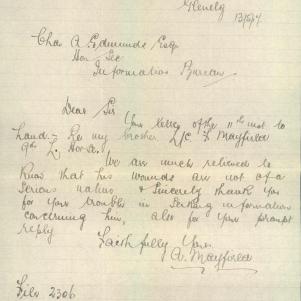 Glenelg
13/5/17
Chas A Edmunds Esq
Hon Sec
Information Bureau
Dear Sir
Your letter of the 11th inst to
hand - Re my brother L/C. F Mayfield
9th L. Horse.
We are much relieved to
know that his wounds are not of a
serious nature & sincerely thank you
for your trouble in seeking information
concerning him, also for your prompt
reply
Faithfully Yours
A. Mayfield
File 2306